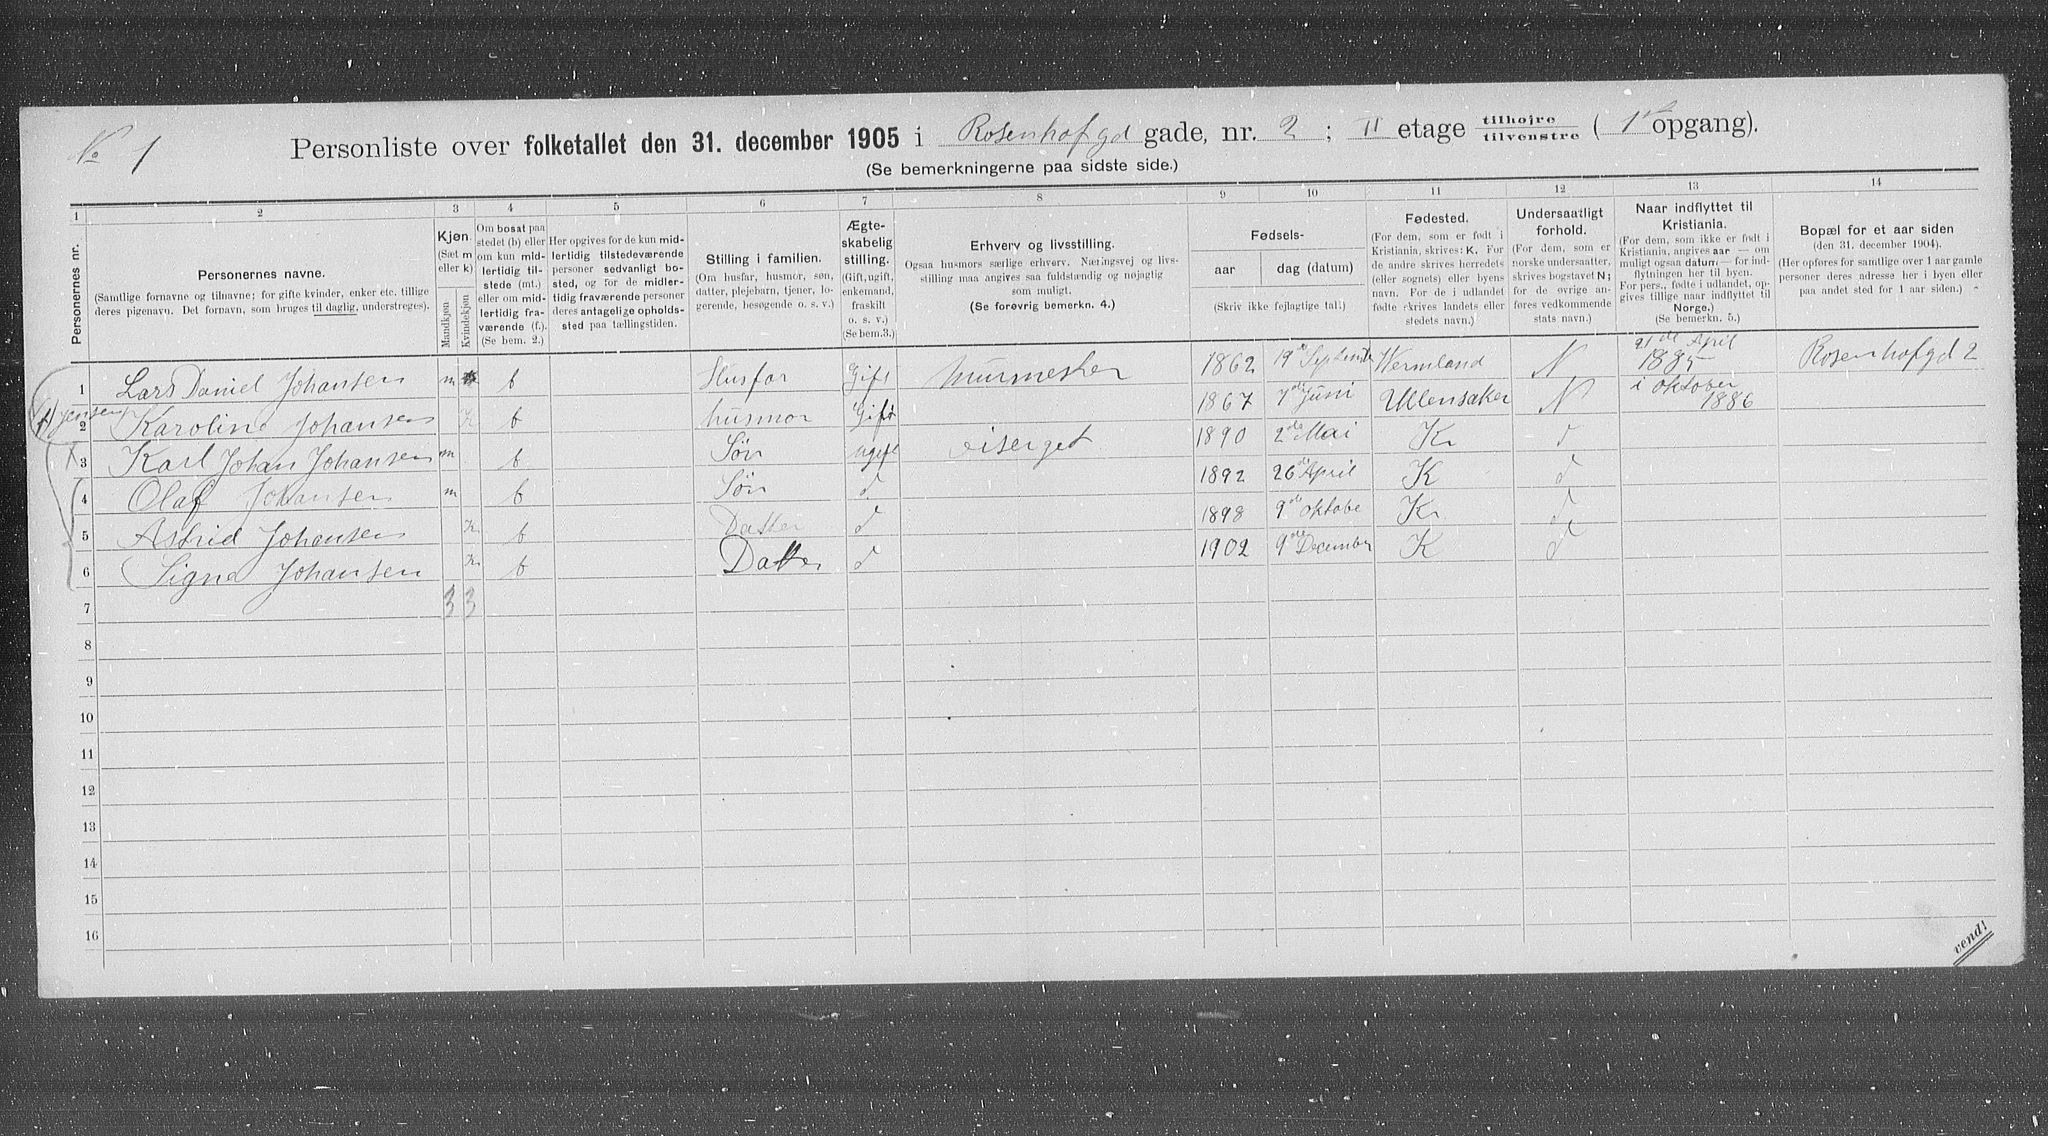 No 1
Personliste over folketallet den 31. december 1905 i Rosenhofgd gade, nr. 2 ; II etage tilhøjre tilvenstre ( 1ste opgang).
(Se bemerkningerne paa sidste side.)
1 2 3 4 5 6 7 8 9 10 11 12 13 14
Personernes nr.
Personernes navne.
(Samtlige fornavne og tilnavne; for gifte kvinder, enker etc. tillige
deres pigenavn. Det fornavn, som bruges til daglig, understreges).
Kjøn.
(Sæt m
eller k)
Mandkjøn.
Kvindekjøn
Om bosat paa
stedet (b) eller
om kun mid-
lertidig til-
stede (mt.)
eller om mid-
lertidig fra-
værende (f.).
(Se bem. 2.)
Her opgives for de kun mid-
lertidig tilstedeværende
personer sedvanligt bo-
sted, og for de midler-
tidig fraværende personer
deres antagelige opholds-
sted paa tællingstiden.
Stilling i familien.
(Om husfar, husmor, søn,
datter, plejebarn, tjener, lo-
gerende, besøgende o. s. v.)
Ægte-
skabelig
stilling.
(Gift, ugift,
enkemand,
fraskilt
o. s. v.)
(Se bem.3.)
Erhverv og livsstilling.
Ogsaa husmors særlige erhverv. Næringsvej og livs-
stilling maa angives saa fuldstændig og nøjagtig
som muligt.
(Se forøvrig bemerkn. 4.)
Fødsels-
aar dag (datum)
(Skriv ikke fejlagtige tal.)
Fødested.
(For dem, som er født i
Kristiania, skrives: K. For
de andre skrives herredets
(eller sognets) eller byens
navn. For de i udlandet
fødte skrives landets eller
stedets navn.)
Undersaatligt
forhold.
(For dem, som er
norske undersaatter,
skrives bogstavet N;
for de øvrige an-
føres vedkommende
stats navn.)
Naar indflyttet til
Kristiania.
(For dem, som ikke er født i
Kristiania, angives aar — om
muligt ogsaa datum — for ind-
flytningen her til byen.
For pers., fødte i udlandet, op-
gives tillige naar indflyttet til
Norge.)
(Se bemerkn. 5.)
Bopæl for et aar siden
(den 31. december 1904).
(Her opføres for samtlige over 1 aar gamle
personer deres adresse her i byen eller
paa andet sted for 1 aar siden.)
1 Lars Daniel Johansen m b Husfar Gift Murmester 1862 19de September Wermland N 21de April 1885 Rosenhofgd 2
2 Jensen Karoline Johansen K b husmor Gift 1867 7de Juni Ullensaker N i oktober 1886
3 Karl Johan Johansen m b Søn ugift viserget 1890 2de Mai Kr d
4 Olaf Johansen m b Søn d 1892 26de April K d
5 Astrid Johansen K b Datter d 1898 9de Oktobe Kr d
6 Signe Johansen K b Datter d 1902 9de December K d
7 3 3
8
9
10
11
12
13
14
15
16
vend!